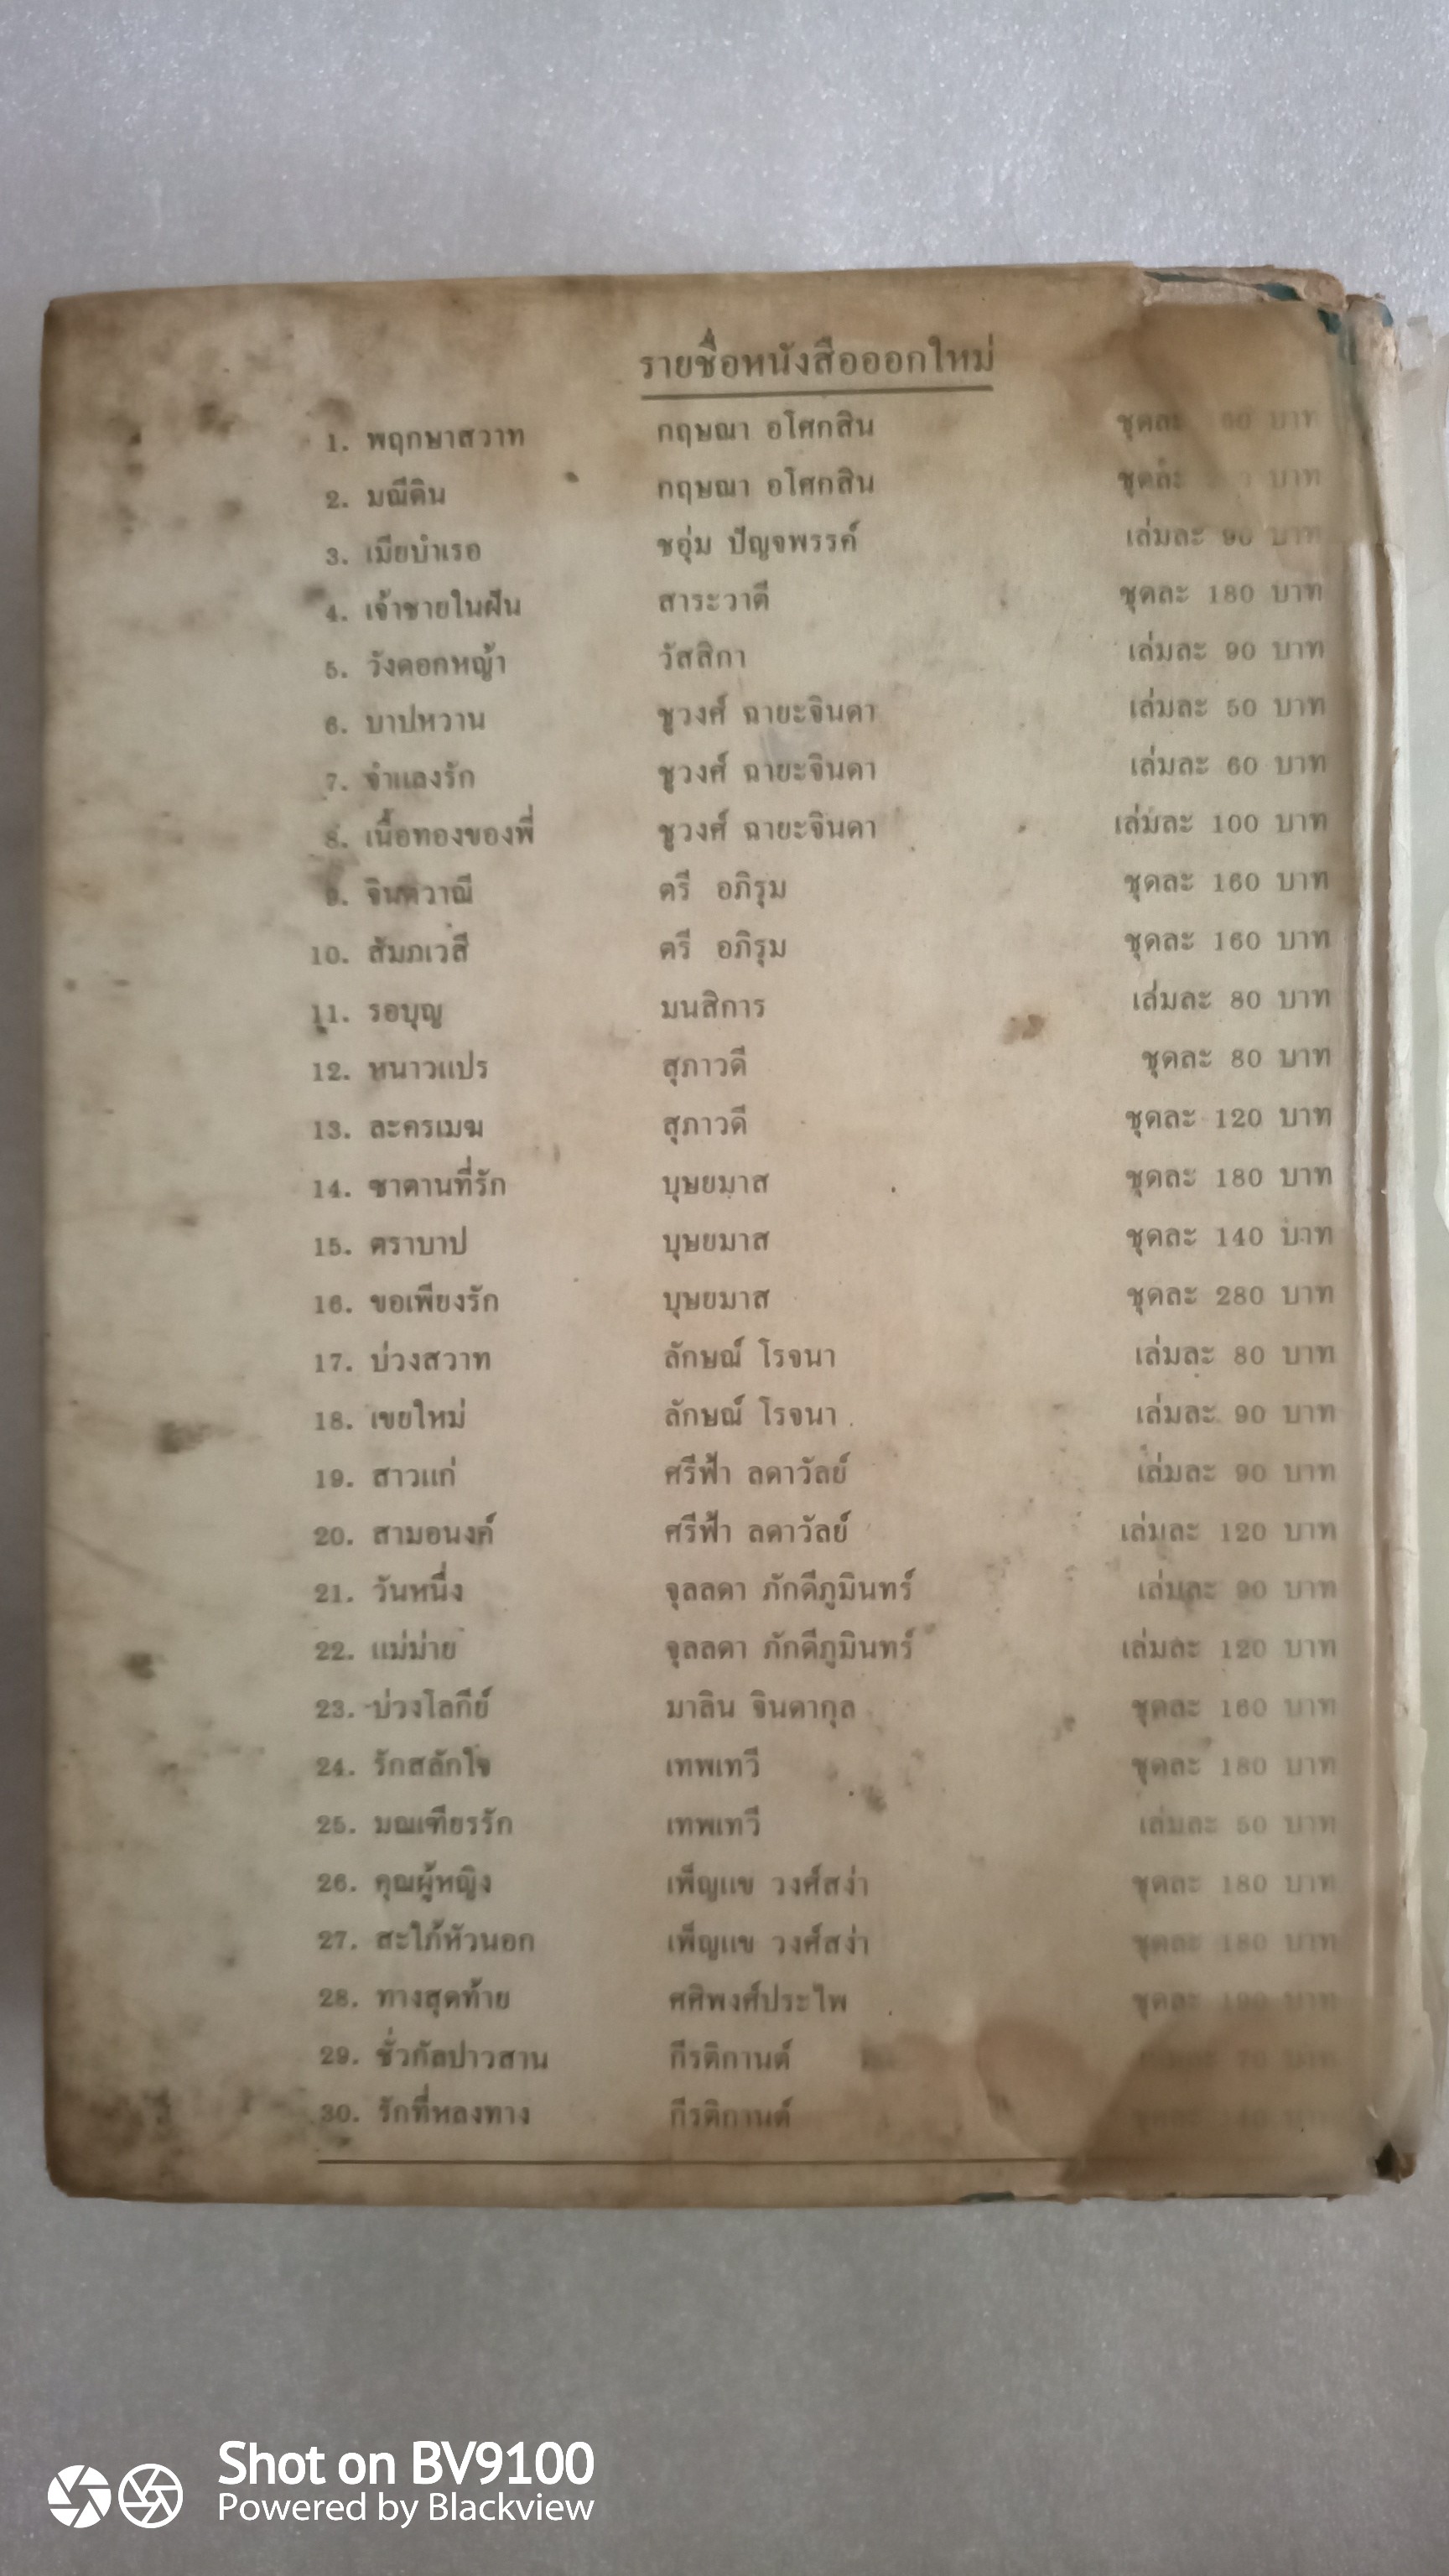 รายชื่อหนังสือออกใหม่
1. พฤกษาสวาท กฤษณา อโศกสิน ชุดละ บาท
2. มณีดิน กฤษณา อโศกสิน ชุดละ บาท
3. เมียบำเรอ ชอุ่ม ปัญจพรรค์ เล่มละ 90 บาท
4. เจ้าชายในฝัน สาระวาดี ชุดละ 180 บาท
5. วังดอกหญ้า วัสสิกา เล่มละ 90 บาท
6. บาปหวาน ชูวงศ์ ฉายะจินดา เล่มละ 50 บาท
7. จำแลงรัก ชูวงศ์ ฉายะจินดา เล่มละ 60 บาท
8. เนื้อทองของพี่ ชูวงศ์ ฉายะจินดา เล่มละ 100 บาท
9. จินตวาณี ตรี อภิรุม ชุดละ 160 บาท
10. สัมภเวสี ตรี อภิรุม ชุดละ 160 บาท
11. รอบุญ มนสิการ เล่มละ 80 บาท
12. หนาวแปร สุภาวดี ชุดละ 80 บาท
13. ละครเมฆ สุภาวดี ชุดละ 120 บาท
14. ซาตานที่รัก บุษยมาส ชุดละ 180 บาท
15. ตราบาป บุษยมาส ชุดละ 140 บาท
16. ขอเพียงรัก บุษยมาส ชุดละ 280 บาท
17. บ่วงสวาท ลักษณ์ โรจนา เล่มละ 80 บาท
18. เขยใหม่ ลักษณ์ โรจนา เล่มละ 90 บาท
19. สาวแก่ ศรีฟ้า ลดาวัลย์ เล่มละ 90 บาท
20. สามอนงค์ ศรีฟ้า ลดาวัลย์ เล่มละ 120 บาท
21. วันหนึ่ง จุลลดา ภักดีภูมินทร์ เล่มละ 90 บาท
22. แม่ม่าย จุลลดา ภักดีภูมินทร์ เล่มละ 120 บาท
23. บ่วงโลกีย์ มาลิน จินดากุล ชุดละ 160 บาท
24. รักสลักใจ เทพเทวี ชุดละ 180 บาท
25. มณเฑียรรัก เทพเทวี เล่มละ 50 บาท
26. คุณผู้หญิง เพ็ญแข วงศ์สง่า ชุดละ 180 บาท
27. สะใภ้หัวนอก เพ็ญแข วงศ์สง่า ชุดละ 180 บาท
28. ทางสุดท้าย ศศิพงศ์ประไพ ชุดละ บาท
29. ชั่วกัลปาวสาน กีรติกานต์ 70 บาท
30. รักที่หลงทาง กีรติกานต์
Shot on BV9100
Powered by Blackview